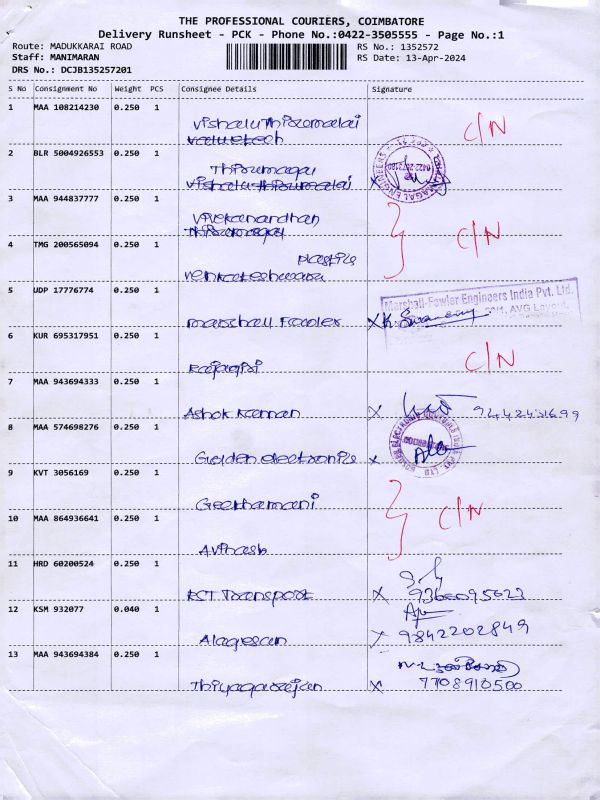 THE PROFESSIONAL COURIERS, COIMBATORE
Delivery Runsheet - PCK - Phone No.:0422-3505555 - Page No.:1
Route: MADUKKARAI ROAD
Staff: MANIMARAN
DRS No.: DCJB135257201
RS No.: 1352572
RS Date: 13-Apr-2024
S No Consignment No Weight PCS Consignee Details Signature
1 MAA 108214230 0.250 1
Vishalu Thirumalai C/N
2 BLR 5004926553 0.250 1
Thirumagal
Vishalu Thirumalai x
3 MAA 944837777 0.250 1
Vivekanandhan
Thirumagal
C/N
4 TMG 200565094 0.250 1
Plastic
Venkateshwara
5 UDP 17776774 0.250 1
Marshall-Fowler Engineers India Pvt. Ltd.
AVG Layout,
Marshall Fowler x K. Swamy
6 KUR 695317951 0.250 1
Rajagiri C/N
7 MAA 943694333 0.250 1
Ashok Kannan x
8 MAA 574698276 0.250 1
Golden electronics x
9 KVT 3056169 0.250 1
Geethamani
C/N
10 MAA 864936641 0.250 1
Avinash
11 HRD 60200524 0.250 1
KCT Transport x
12 KSM 932077 0.040 1
Alagesan x 9842202849
13 MAA 943694384 0.250 1
Thiyagarajan x 7708910500